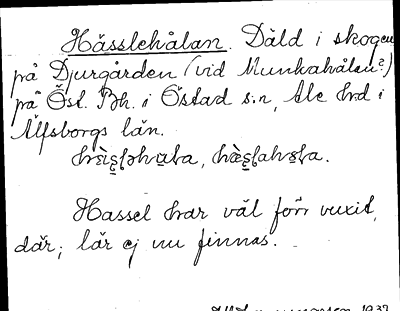 Hässlehålan. Däld i skogen
på Djurgården (vid Munkahålan?)
på Öst. Bh. i Östad s:n, Ale hrd i
Älfsborgs län.
Hassel har väl förr vuxit
där; lär ej nu finnas.
1937